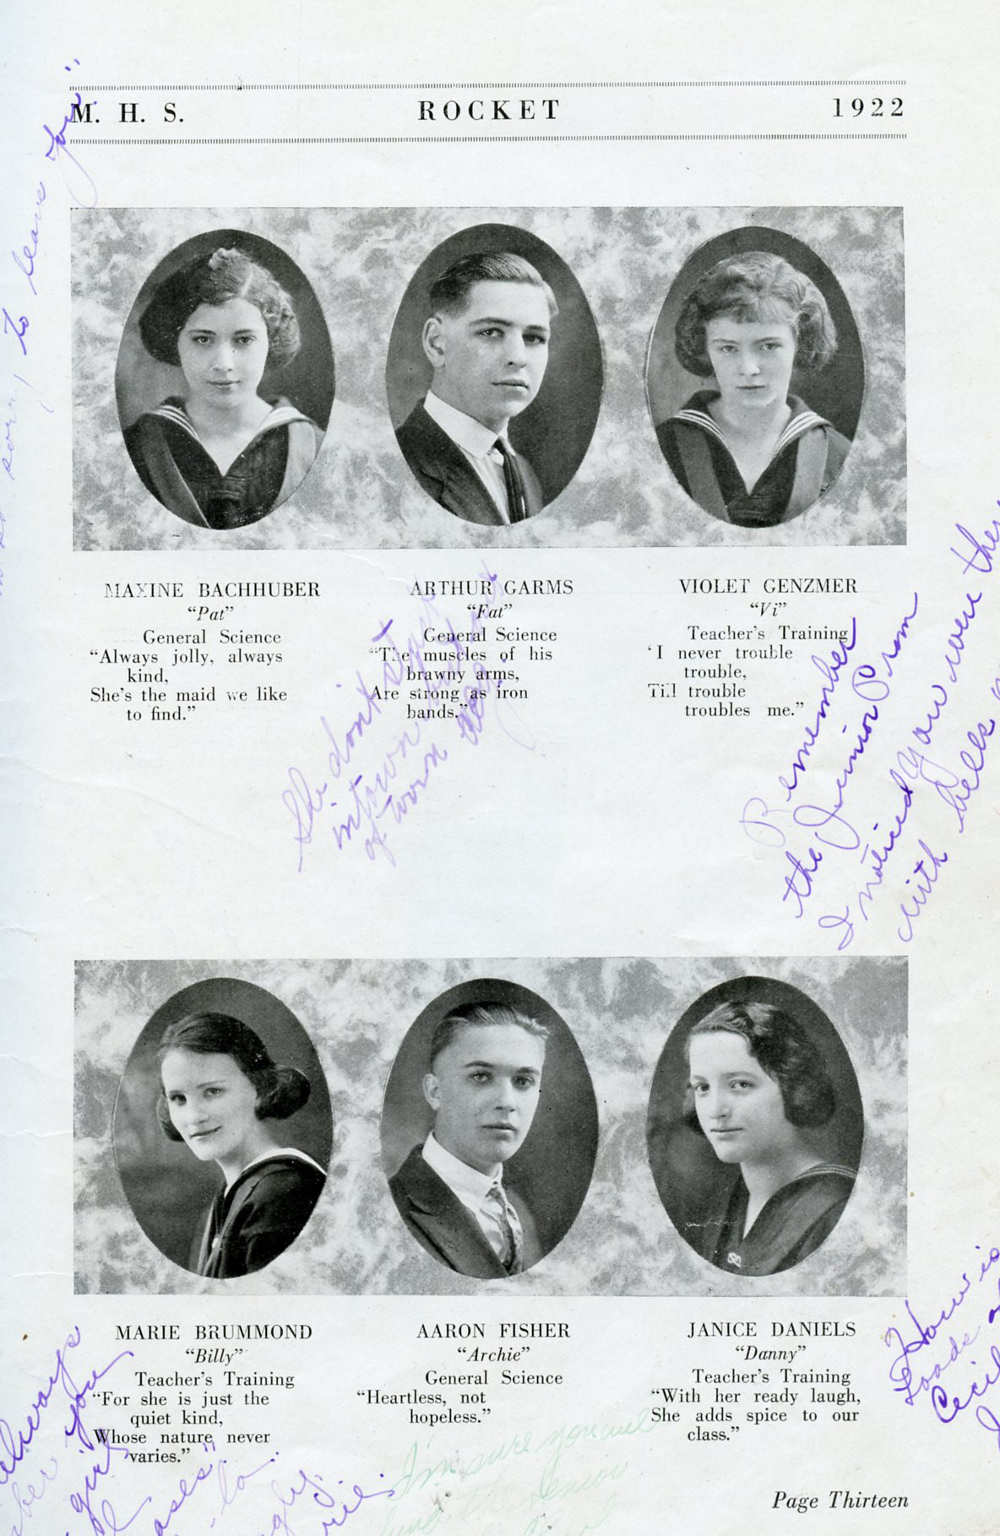 M. H. S.
ROCKET
1922
MAXINE BACHHUBER
"Pat"
General Science
"Always jolly, always
kind,
She's the maid we like
to find."
ARTHUR GARMS
"Fat"
General Science
"The muscles of his
brawny arms,
Are strong as iron
bands."
VIOLET GENZMER
"Vi"
Teacher's Training
"I never trouble
trouble,
Till trouble
troubles me."
to leave you"
She don't
in town
of town
Remember
the Junior Prom
I noticed you were
with bells
MARIE BRUMMOND
"Billy"
Teacher's Training
"For she is just the
quiet kind,
Whose nature never
varies."
AARON FISHER
"Archie"
General Science
"Heartless, not
hopeless."
JANICE DANIELS
"Danny"
Teacher's Training
"With her ready laugh,
She adds spice to our
class."
How is
Cecil
always
you
girl
I'm sure you
Page Thirteen